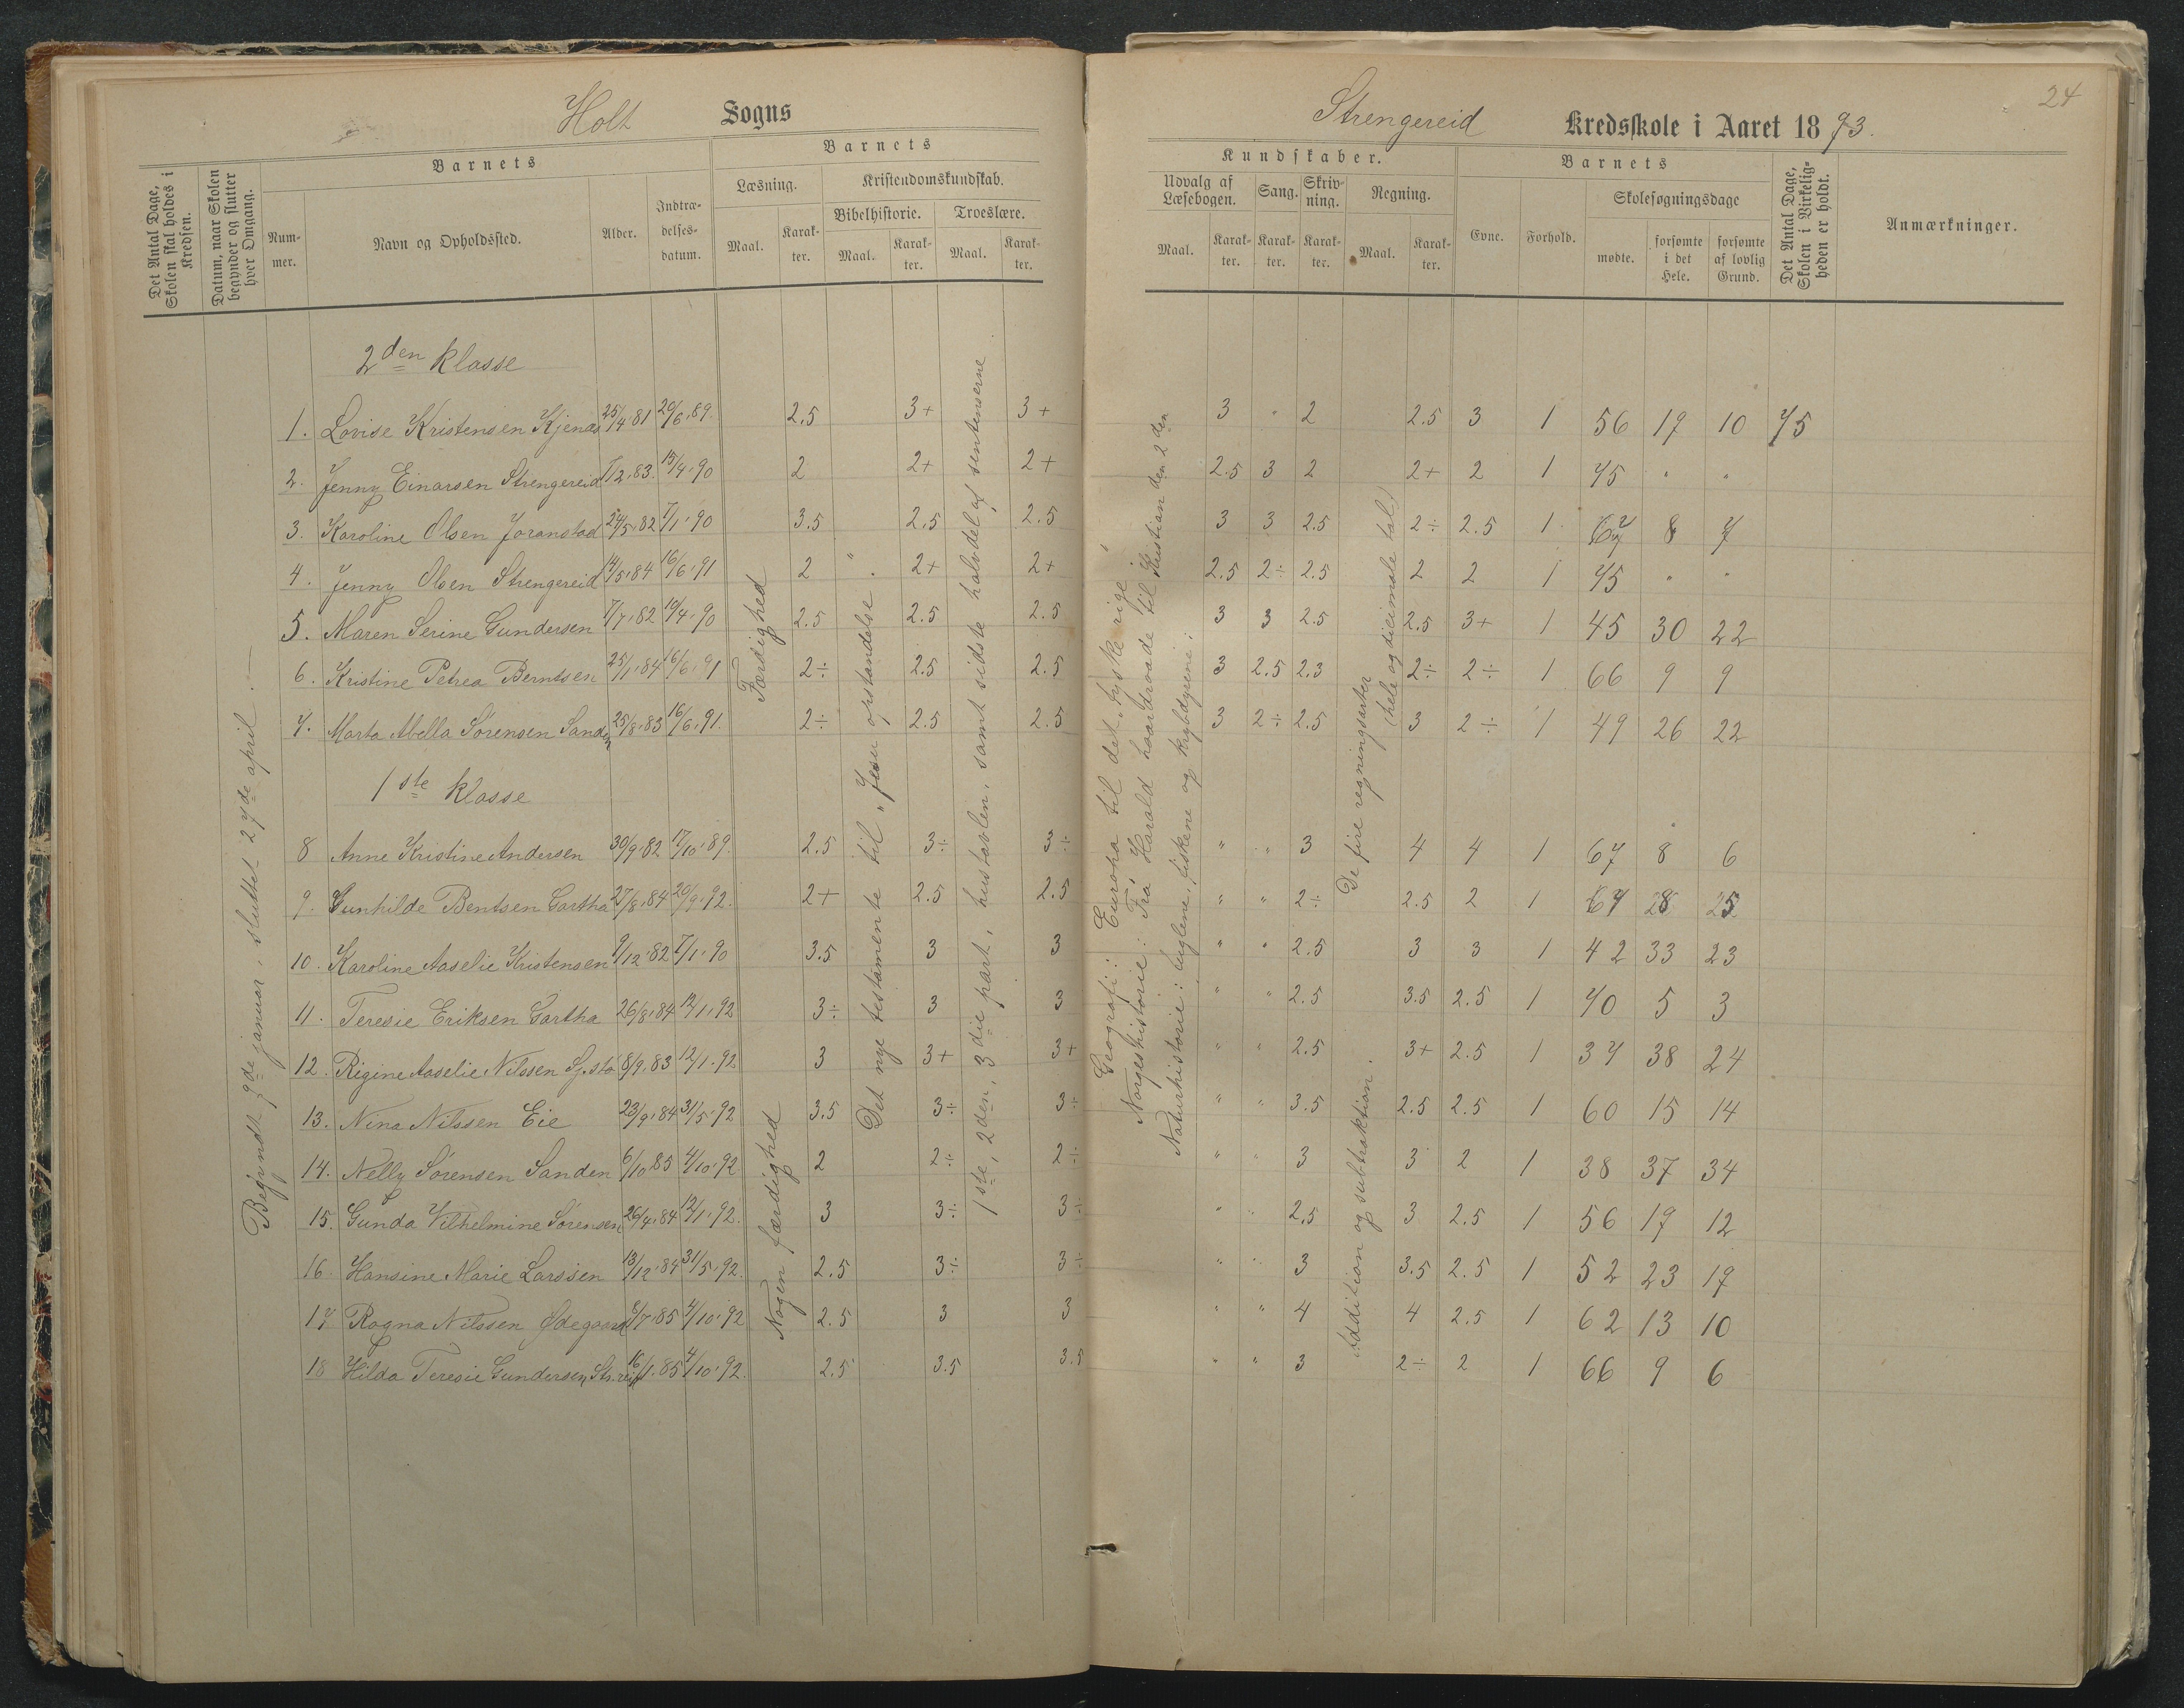 Holt Sogns
Strengereid Kredsskole i Aaret 1893.
24
Det Antal Dage, Skolen skal holdes i Kredsen.
Datum, naar Skolen begynder og slutter hver Omgang.
Barnets
Nummer.
Navn og Opholdssted.
Alder.
Indtrædelsesdatum.
Barnets
Læsning.
Maal.
Karakter.
Kristendomskundskab.
Bibelhistorie.
Maal.
Karakter.
Troeslære.
Maal.
Karakter.
Kundskaber.
Udvalg af Læsebogen.
Maal.
Karakter.
Sang.
Karakter.
Skrivning.
Karakter.
Regning.
Maal.
Karakter.
Barnets
Evne.
Forhold.
Skolesøgningsdage
mødte.
forsømte i det Hele.
forsømte af lovlig Grund.
Det Antal Dage, Skolen i Virkeligheden er holdt.
Anmærkninger.
Begyndt 9de januar, sluttet 27de april.
2den klasse
1. Lovise Kristensen Kjenas 25/4.81 20/6.89. 2.5 3+ 3+ 3 " 2 2.5 3 1 56 19 10 75
2. Jenny Einarsen Strengereid 1/2.83. 15/4.90 2 2+ 2+ 2.5 3 2 2+ 2 1 75 " "
3. Karoline Olsen Joranstad 24/5.82 7/1.90 3.5 2.5 2.5 3 3 2.5 2÷ 2.5 1 67 8 7
4. Jenny Olsen Strengereid 14/5.84 16/6.91 2 2+ 2+ 2.5 2÷ 2.5 2 2 1 75 " "
5. Maren Serine Gundersen 7/7.82 19/4.90 2.5 2.5 2.5 3 3 2.5 2.5 3+ 1 45 30 22
6. Kristine Petrea Berntsen 25/1.84 16/6.91 2÷ 2.5 2.5 3 2.5 2.3 2÷ 2÷ 1 66 9 9
7. Marta Abella Sørensen Sanden 25/8.83 16/6.91. 2÷ 2.5 2.5 3 2÷ 2.5 3 2÷ 1 49 26 22
1ste klasse
8 Anne Kristine Andersen 30/9.82 17/10.89. 2.5 3÷ 3÷ " " 3 4 4 1 67 8 6
9. Gunhilde Bentsen Gartha 27/8.84 20/9.92. 2+ 2.5 2.5 " " 2÷ 2.5 2 1 28 25
10. Karoline Aaselie Kristensen 9/12.82 7/1.90 3.5 3 3 " " 2.5 3 3 1 42 33 23
11. Teresie Eriksen Gartha 26/8.84 12/1.92 3÷ 3 3 " " 2.5 3.5 2.5 1 70 5 3
12. Rigine Aaselie Nilssen Sj.stø 8/9.83 12/1.92 3 3+ 3+ " " 2.5 3+ 2.5 1 37 38 24
13. Nina Nilssen Eie 23/9.84 31/5.92 3.5 3÷ 3÷ " " 3.5 2.5 2.5 1 60 15 14
14. Nelly Sørensen Sanden 6/10.85 4/10.92 2 2÷ 2÷ " " 3 3 2 1 38 37 34
15. Gunda Vilhelmine Sørensen 26/4.84 12/1.92. 3 3÷ 3÷ " " 2.5 3 2.5 1 56 19 12
16 Hansine Marie Larssen 13/12.84 31/5.92. 2.5 3÷ 3÷ " " 3 3.5 2.5 1 52 23 19
17 Ragna Nilssen Ødegaard 8/7.85 4/10.92 2.5 3 3 " " 4 4 2.5 1 62 13 10
18 Hilda Teresie Gundersen Str.reid 16/1.85 4/10.92. 2.5 3.5 3.5 " " 3 2÷ 2 1 66 9 6
Færdighed
Nogen færdighed
Det nye testamente til "Jesu opstandelse".
1ste, 2den, 3die part, hustavlen, samt sidste halvdel af sentenserne
Geografi: Europa til det tyske rige.
Norgeshistorie: Fra Harald haardraade til Kristian den 2den
Naturhistorie: fuglene, fiskene og krybdyrene:
De fire regningsarter (hele og decimale tal)
Addition og subtraktion.